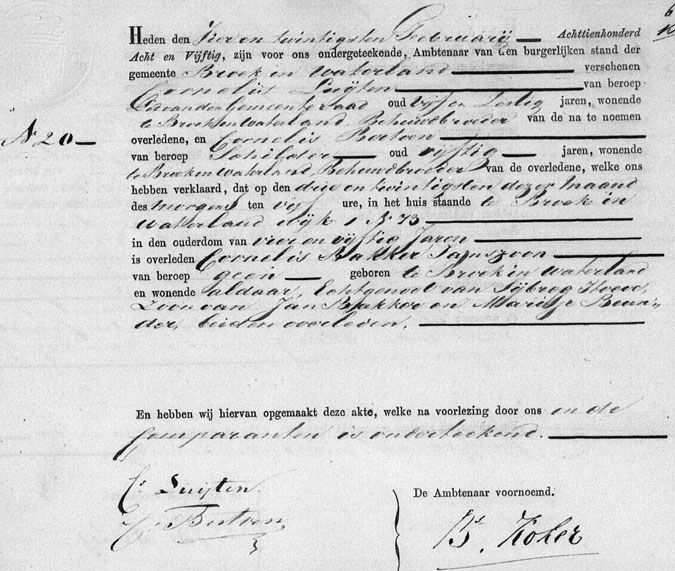 Heden den Vier en twintigsten Februarij Achttienhonderd
Acht en Vijftig, zijn voor ons ondergeteekende, Ambtenaar van den burgerlijken stand der
gemeente Broek in Waterland verschenen
Cornelis Luijten van beroep
Lid van den Gemeenteraad oud vijf en Zestig jaren, wonende
te Broek in Waterland Behuwdbroeder van de na te noemen
N 20
overledene, en Cornelis
van beroep Schilder oud vijftig jaren, wonende
te Broek in Waterland, Behuwdbroeder van de overledene, welke ons
hebben verklaard, dat op den drie en twintigsten dezer maand
des morgens ten vijf ure, in het huis staande te Broek in
Waterland wijk 1 N 73
in den ouderdom van vier en vijftig Jaren
is overleden Cornelis Bakker Janszoon
van beroep geen geboren te Broek in Waterland
en wonende aldaar, Echtgenoot van Sijbrog
Zoon van Jan Bakker en Maritje Beun-
der, beiden overleden.
En hebben wij hiervan opgemaakt deze akte, welke na voorlezing door ons en de
Comparanten is onderteekend.
C. Luijten.
De Ambtenaar voornoemd.
Koker